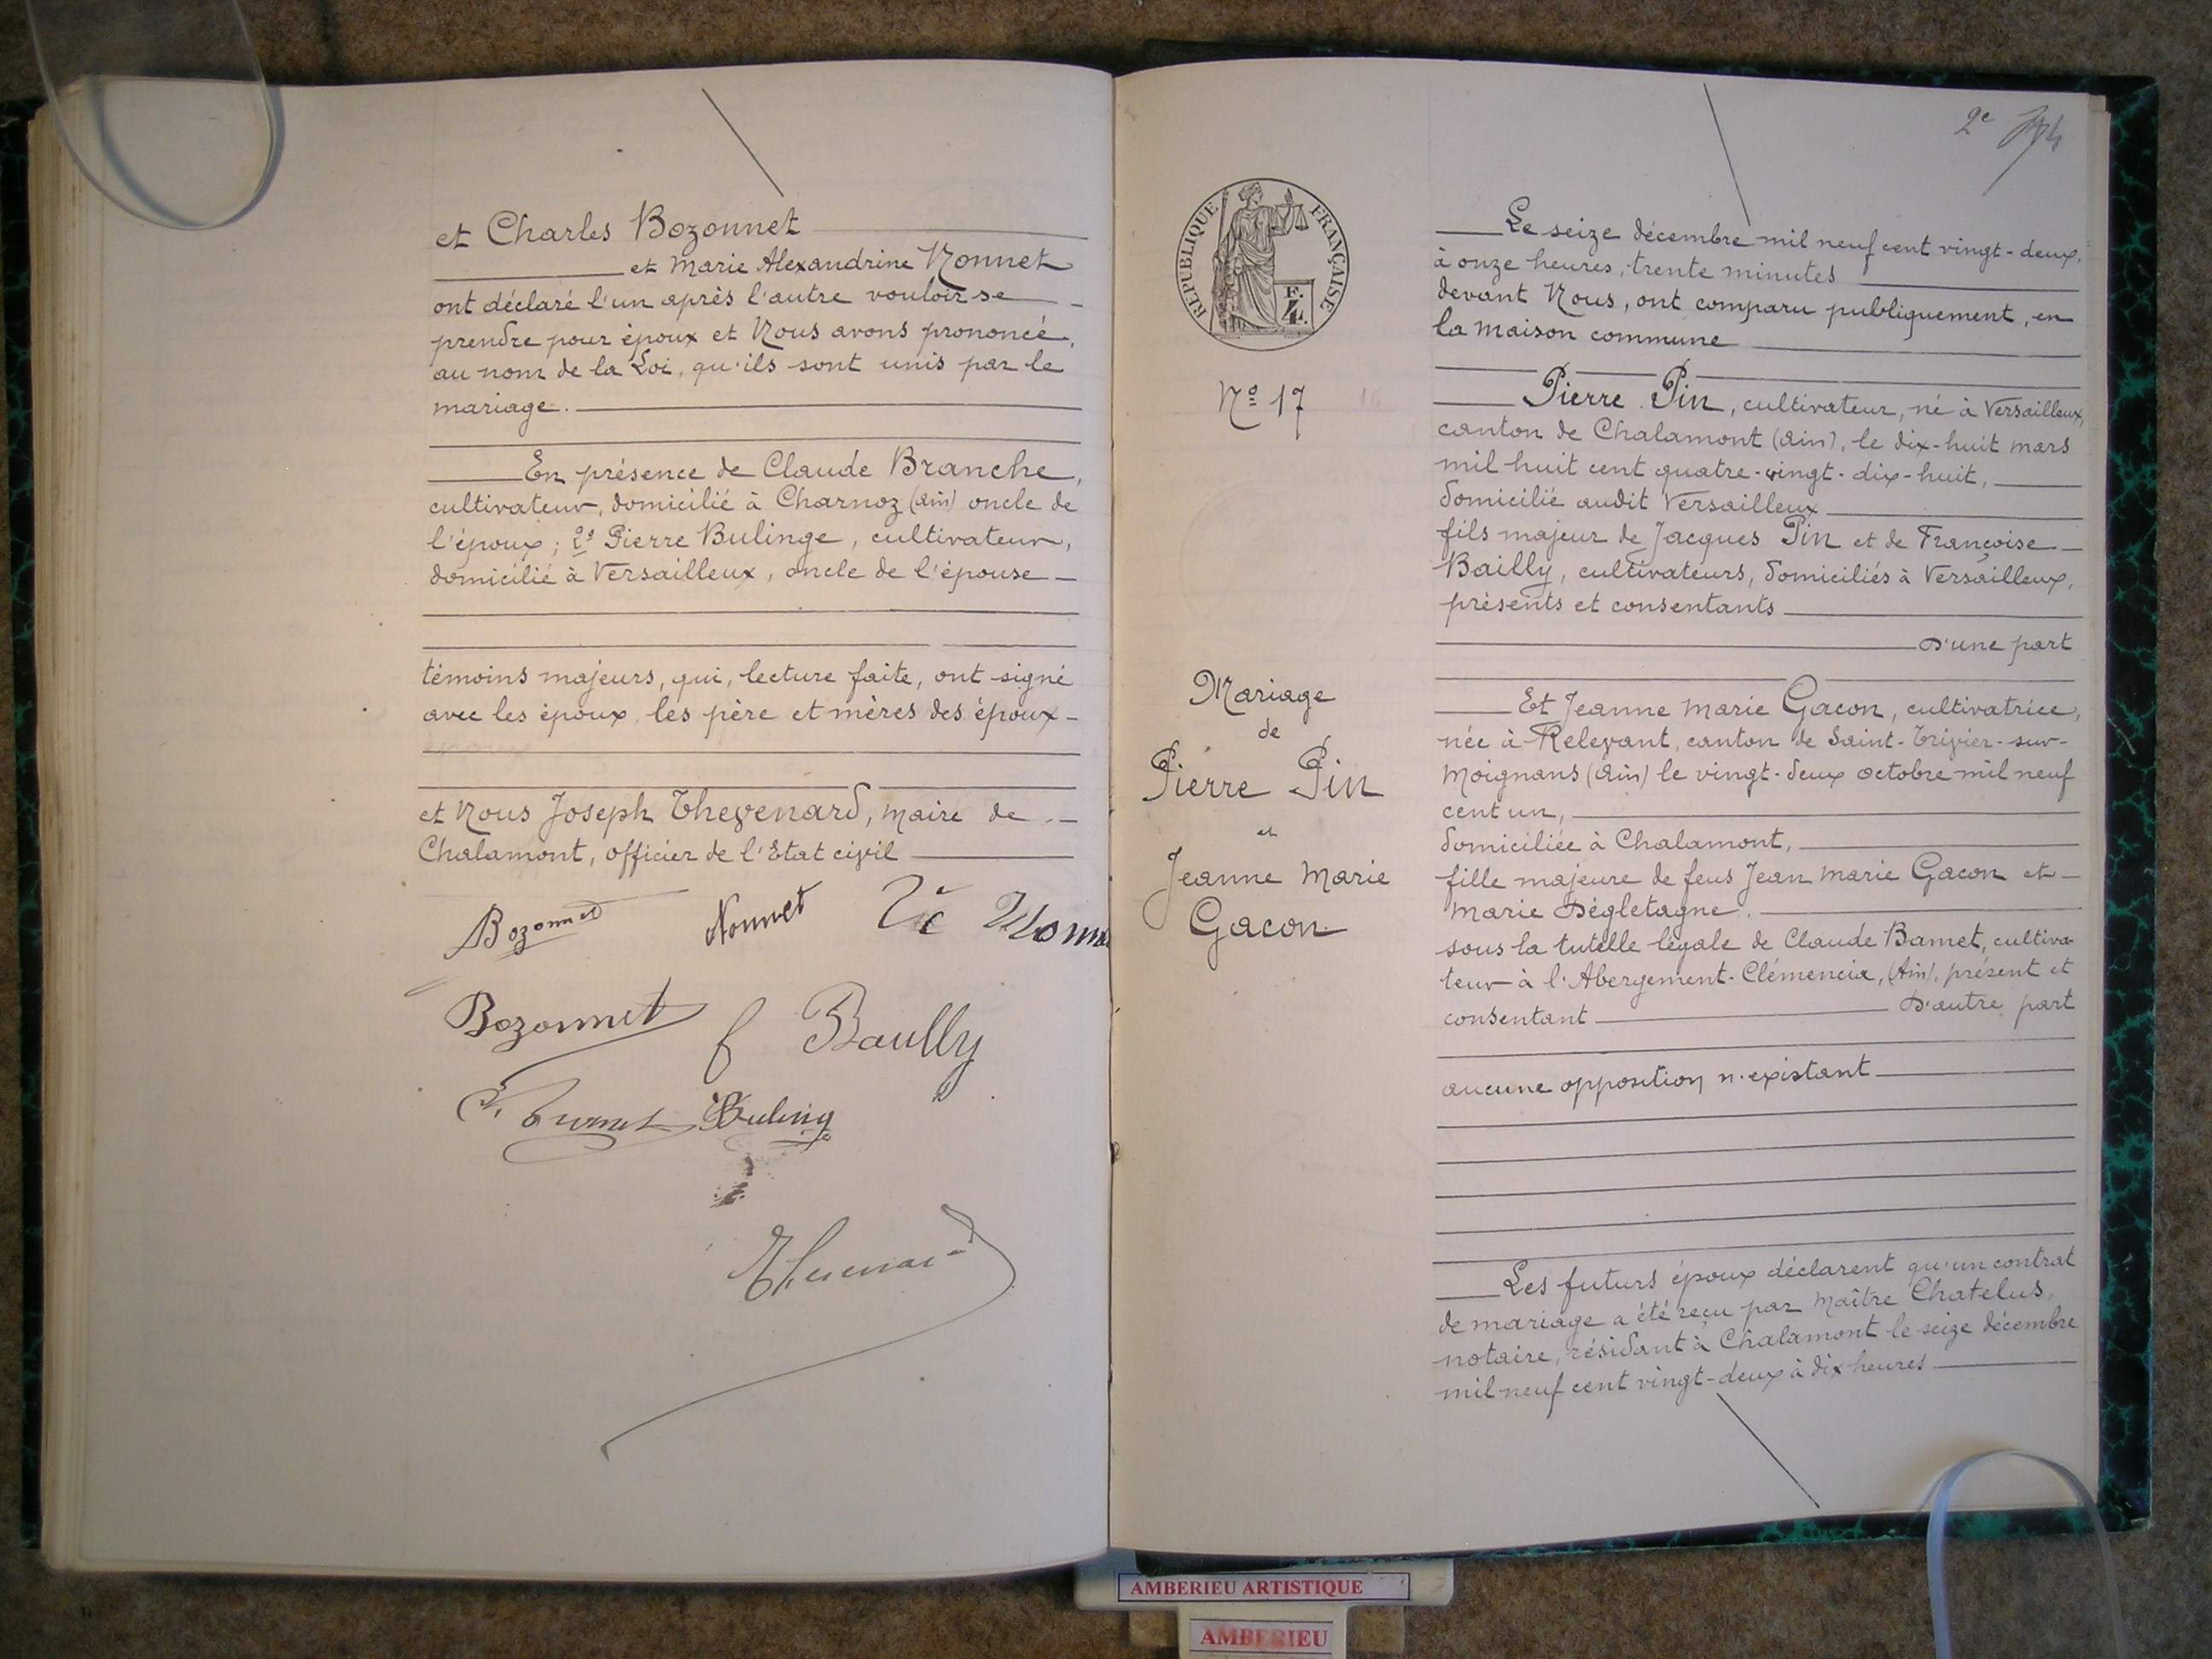 et Charles Bozonnet
et Marie Alexandrine Nonnet
ont déclaré l'un après l'autre vouloir se
prendre pour époux et Nous avons prononcé,
au nom de la Loi, qu'ils sont unis par le
mariage.
En présence de Claude Branche,
cultivateur, domicilié à Charnoz (Ain) oncle de
l'époux; 2º Pierre Bulinge, cultivateur,
domicilié à Versailleux, oncle de l'épouse
témoins majeurs, qui, lecture faite, ont signé
avec les époux, les père et mères des époux
et Nous Joseph Thevenard, Maire de
Chalamont, officier de l'Etat civil
Bozonnet Nonnet
Bozonnet
Buling
2e
RÉPUBLIQUE FRANÇAISE
F.
4.
Nº 17
Mariage
de
Pierre Pin
et
Jeanne Marie
Gacon
Le seize décembre mil neuf cent vingt-deux,
à onze heures, trente minutes
devant Nous, ont comparu publiquement, en
la maison commune
Pierre Pin, cultivateur, né à Versailleux,
canton de Chalamont (Ain), le dix-huit mars
mil huit cent quatre-vingt-dix-huit,
domicilié audit Versailleux
fils majeur de Jacques Pin et de Françoise
Bailly, cultivateurs, domiciliés à Versailleux,
présents et consentants
D'une part
Et Jeanne Marie Gacon, cultivatrice,
née à Relevant, canton de Saint-Trivier-sur-
Moignans (Ain) le vingt-deux octobre mil neuf
cent un,
domiciliée à Chalamont,
fille majeure de feus Jean Marie Gacon et
Marie Dégletagne.
sous la tutelle légale de Claude Bamet, cultiva-
teur à l'Abergement-Clémencia, (Ain), présent et
consentant D'autre part
aucune opposition n'existant
Les futurs époux déclarent qu'un contrat
de mariage a été reçu par Maître Chatelus,
notaire, résidant à Chalamont le seize décembre
mil neuf cent vingt-deux à dix heures
AMBERIEU ARTISTIQUE
AMBERIEU